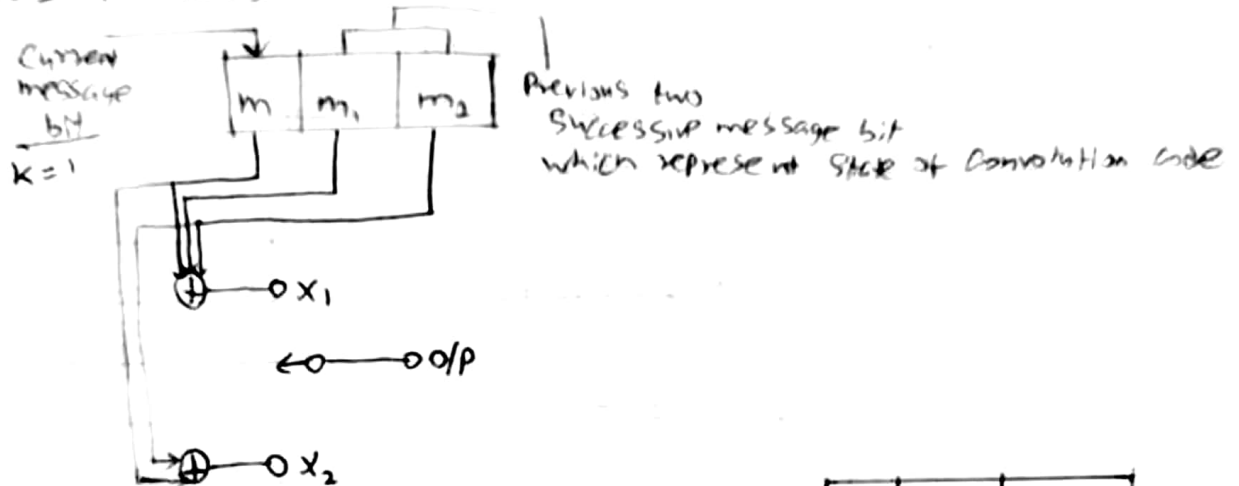 Current
message
bit
k = 1
m m₁ m₂
Previous two
Successive message bit
which represent state of Convolution code
X₁
O/P
X₂